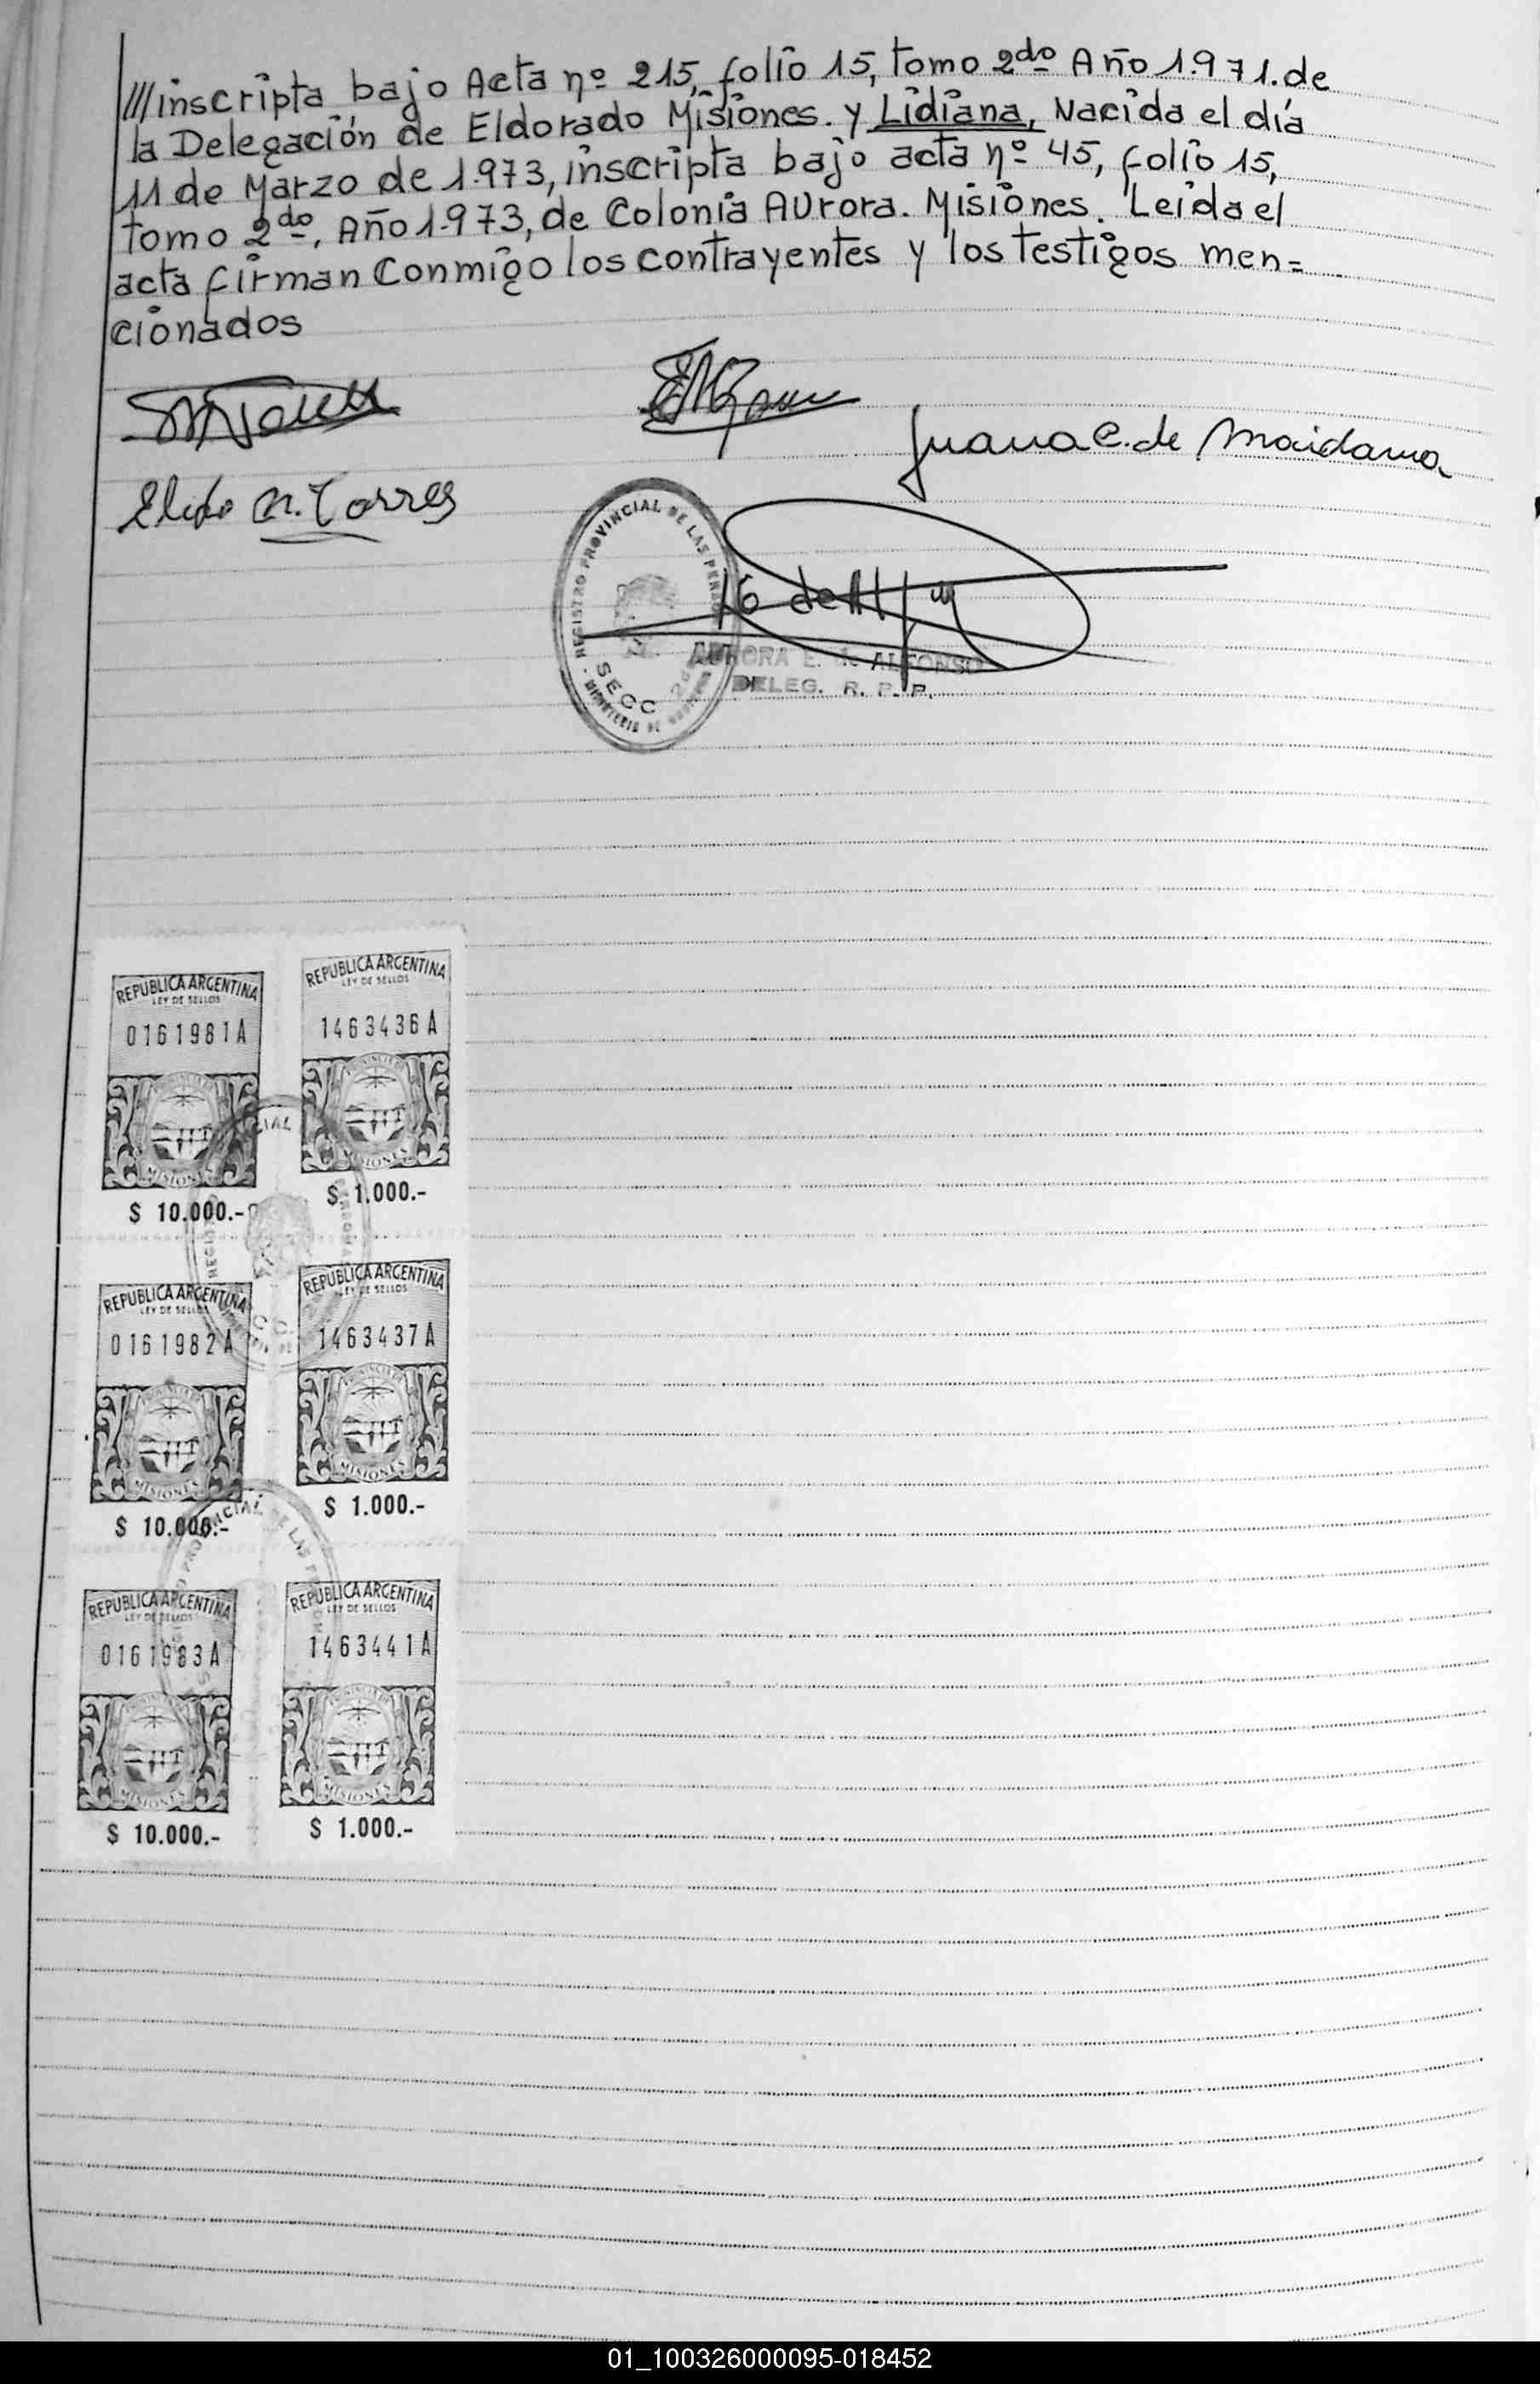 ///inscripta, bajo Acta nº 215, folio 15, tomo 2do Año 1.971. de
la Delegación de Eldorado Misiones. y Lidiana, Nacida el día
11 de Marzo de 1.973, inscripta bajo acta nº 45, folio 15,
tomo 2do, Año 1.973, de Colonia Aurora. Misiones. Leida el
acta firman conmigo los contrayentes y los testigos men=
cionados
Juana C. de Maidana
Torres
REGISTRO PROVINCIAL DE LAS
SECC
MINISTERIO DE
AURORA E. ALFONSO
DELEG. R. P. P.
REPUBLICA ARGENTINA
LEY DE SELLOS
0161981A
MISIONES
$ 10.000.-
REPUBLICA ARGENTINA
LEY DE SELLOS
1463436A
MISIONES
$ 1.000.-
REPUBLICA ARGENTINA
LEY DE SELLOS
0161982A
MISIONES
$ 10.000.-
REPUBLICA ARGENTINA
LEY DE SELLOS
1463437A
MISIONES
$ 1.000.-
REPUBLICA ARGENTINA
LEY DE SELLOS
0161983A
MISIONES
$ 10.000.-
REPUBLICA ARGENTINA
LEY DE SELLOS
1463441A
MISIONES
$ 1.000.-
01_100326000095-018452